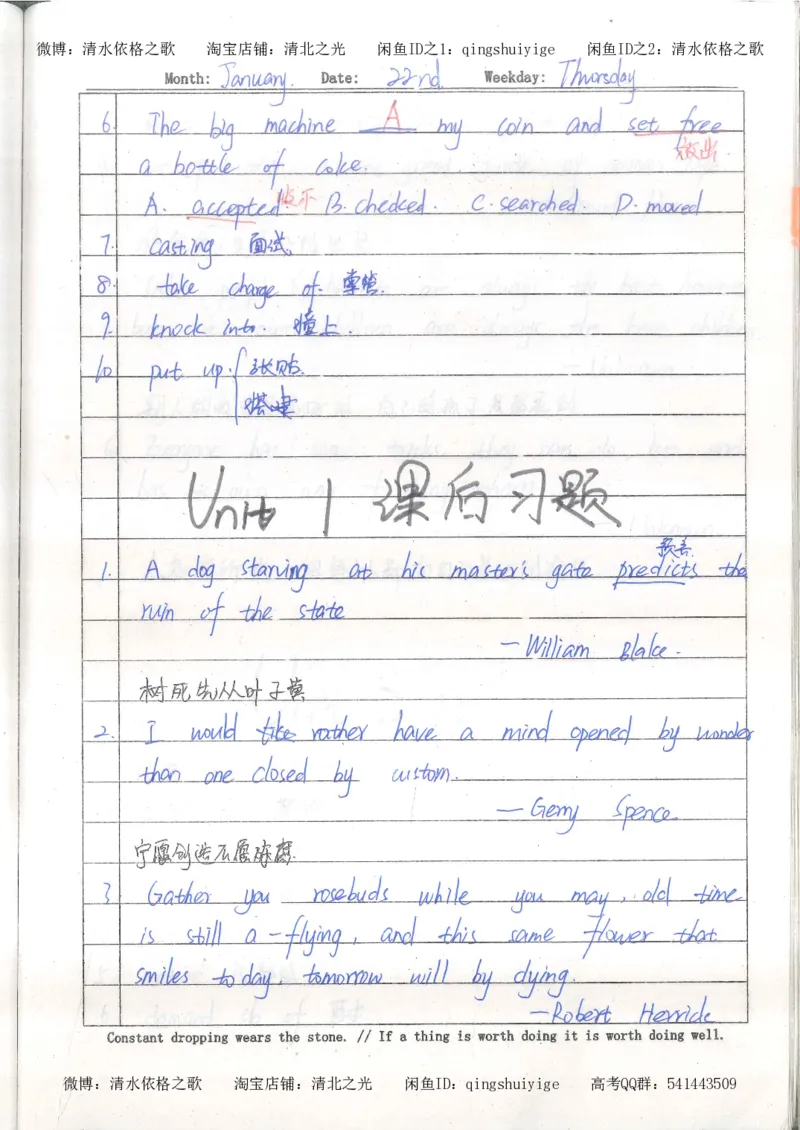 微博：清水依格之歌 淘宝店铺：清北之光 闲鱼ID之1：qingshuiyige 闲鱼ID之2：清水依格之歌
Month: January. Date: 22nd Weekday: Thursday
6. The big machine A my coin and set free
放出.
a bottle of coke.
A. accepted 接下 B. checked. C. searched. D. moved
7. casting 面试.
8. take charge of. 掌管.
9. knock into. 撞上.
10 put up. 张贴.
搭建
Unit 1 课后习题
预言.
1. A dog starving at his master's gate predicts the
ruin of the state
—William Blake.
树死先从叶子黄
2. I would like rather have a mind opened by wonder
than one closed by custom.
—Gerry Spence
宁愿创造不愿
3 Gather you rosebuds while you may, old time
is still a-flying, and this same flower that
smiles today, tomorrow will by dying.
—Robert Herrick
Constant dropping wears the stone. // If a thing is worth doing it is worth doing well.
微博：清水依格之歌 淘宝店铺：清北之光 闲鱼ID：qingshuiyige 高考QQ群：541443509